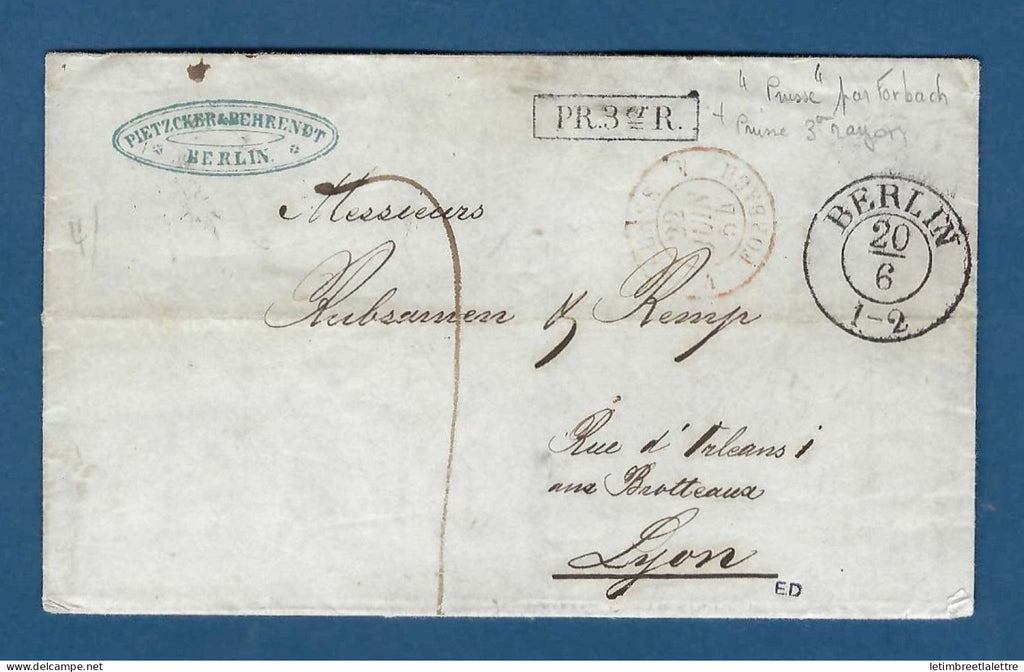 PIETZCKER & BEHRENDT
BERLIN
PR. 3e R.
" Prusse " par Forbach
+ Prusse 3e rayon
FORBACH
22
JUIN
BERLIN
20
6
1-2
Messieurs
Rubsamen & Remp
Rue d'Orleans 1
aux Brotteaux
Lyon
ED
www.delcampe.net
letimbreetlalettre